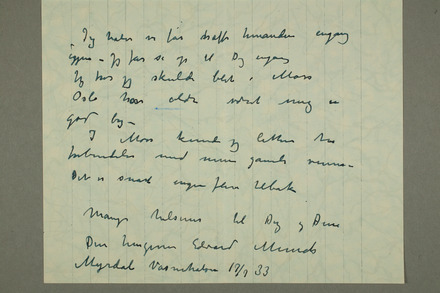 Jeg haber vi får træffe hinanden engang
igjen – Jeg får se op til Dig engang
Jeg tror jeg skulde blet i Moss
Oslo har aldri været nogen
god by –
I Moss kunde jeg lettere ha
forbindelse med mine gamle venner –
Det er snart ingen flere tilbake
Mange hilsener til Dig og Dine
Din hengivne Edvard Munch
Myrdal Vatnahalsen 19/7 33